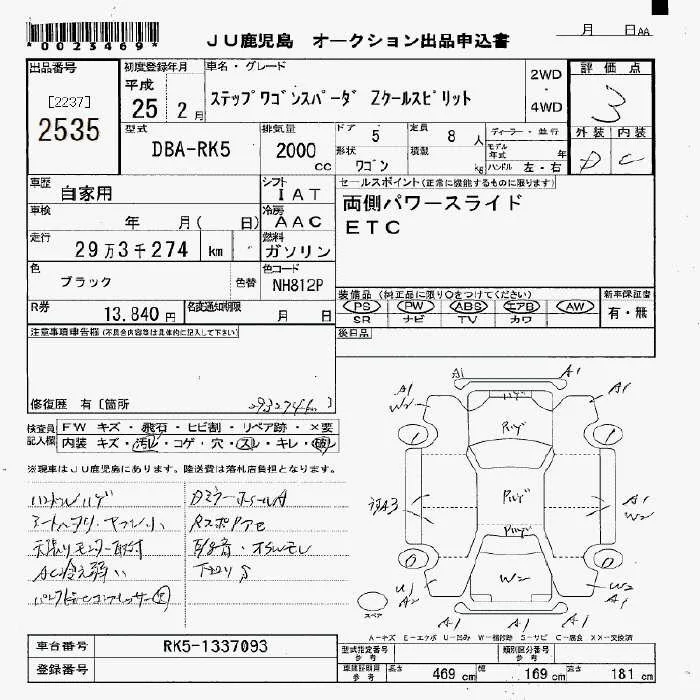 *0023469*
JU鹿児島 オークション出品申込書
月 日 AA
出品番号
[2237]
2535
初度登録年月
平成
25 2月
車名・グレード
ステップワゴンスパーダ Zクールスピリット
2WD
・
4WD
評価点
3
外装 内装
D C
型式
DBA-RK5
排気量
2000
cc
ドア 5
定員 8 人
形状
ワゴン
積載
kg
ディーラー・並行
モデル年式 年
ハンドル 左・右
車歴
自家用
シフト
IAT
車検
年 月( 日)
冷房
AAC
走行
29万3千274 km
燃料
ガソリン
色
ブラック
色替
色コード
NH812P
セールスポイント(正常に機能するものに限ります)
両側パワースライド
ETC
R券
13,840円
名変通知期限
月 日
装備品(純正品に限り○をつけてください)
PS PW ABS エアB AW
SR ナビ TV カワ
新車保証書
有・無
後日品
注意事項車告欄(不具合内容等は具体的に記入して下さい)
修復歴 有[箇所
293274km]
検査員記入欄
FW キズ・飛石・ヒビ割・リペア跡・×要
内装 キズ・汚レ・コゲ・穴・スレ・キレ・破レ
※現車はJU鹿児島にあります。陸送費は落札店負担となります。
ハンドルハゲ
天張りモニター取付
AC冷え弱い
A1
A1
A1
W2
A1
ハゲ
1
1
A1
W2
W2
0
0
U1
A2
W2
A1
A1
A1
スペア
A-キズ E-エクボ U-凹み W-補修跡 S-サビ C-腐食 XX-交換済
車台番号
RK5-1337093
登録番号
型式指定番号
参考
類別区分番号
参考
車検証記載
参考
長さ 469 cm
幅 169 cm
高さ 181 cm